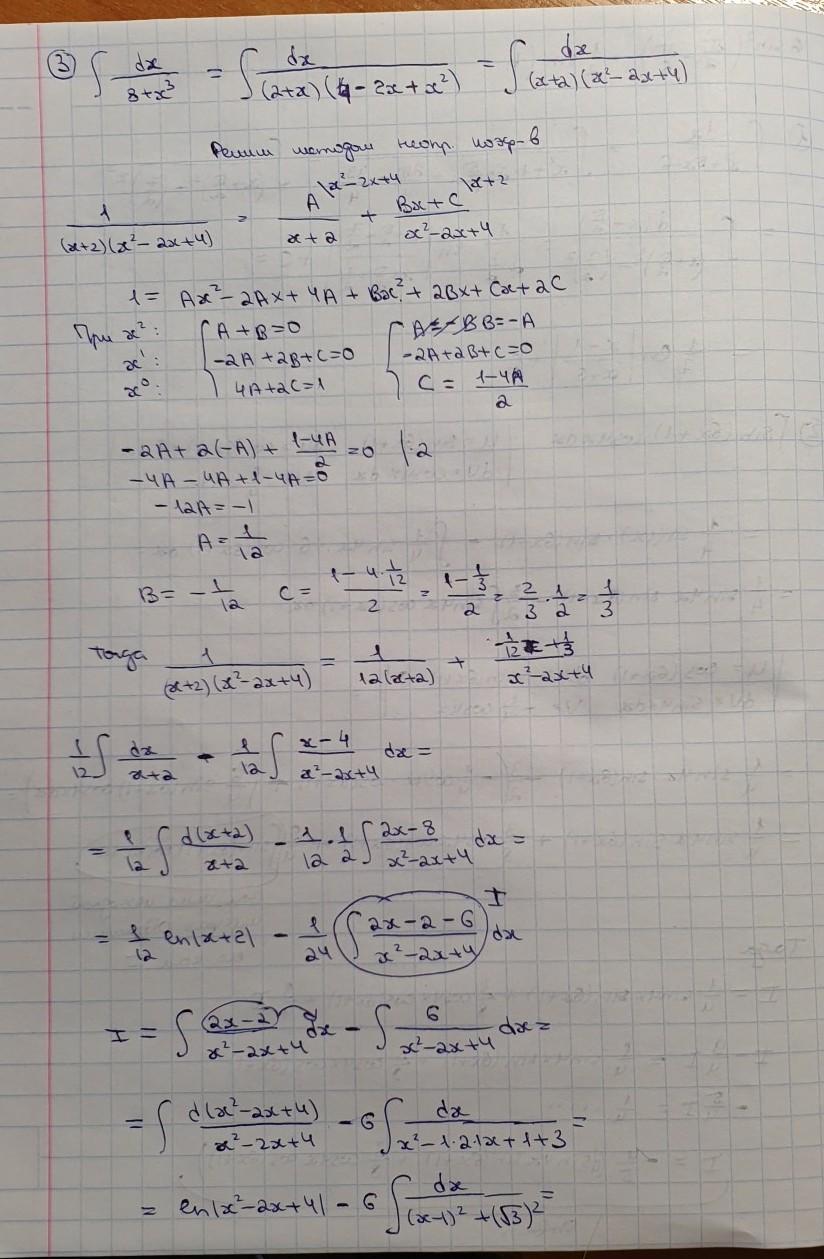 ③ ∫ dx/(8+x³) = ∫ dx/((2+x)(4-2x+x²)) = ∫ dx/((x+2)(x²-2x+4))
Решим методом неопр. коэф-в
1/((x+2)(x²-2x+4)) = A\x²-2x+4/(x+2) + Bx+C\x+2/(x²-2x+4)
1 = Ax²-2Ax+4A+Bx²+2Bx+Cx+2C
При x²: { A+B=0 { B=-A
x¹: -2A+2B+C=0 -2A+2B+C=0
x⁰: 4A+2C=1 C = (1-4A)/2
-2A+2(-A)+(1-4A)/2=0 |·2
-4A-4A+1-4A=0
-12A=-1
A=1/12
B=-1/12 C=(1-4·1/12)/2 = (1-1/3)/2 = 2/3·1/2 = 1/3
Тогда 1/((x+2)(x²-2x+4)) = 1/(12(x+2)) + (-1/12x+1/3)/(x²-2x+4)
1/12 ∫ dx/(x+2) - 1/12 ∫ (x-4)/(x²-2x+4) dx =
= 1/12 ∫ d(x+2)/(x+2) - 1/12·1/2 ∫ (2x-8)/(x²-2x+4) dx =
= 1/12 ln|x+2| - 1/24 ∫ (2x-2-6)/(x²-2x+4) dx I
I = ∫ (2x-2)/(x²-2x+4) dx - ∫ 6/(x²-2x+4) dx =
= ∫ d(x²-2x+4)/(x²-2x+4) - 6 ∫ dx/(x²-1·2·1x+1+3) =
= ln|x²-2x+4| - 6 ∫ dx/((x-1)²+(√3)²) =